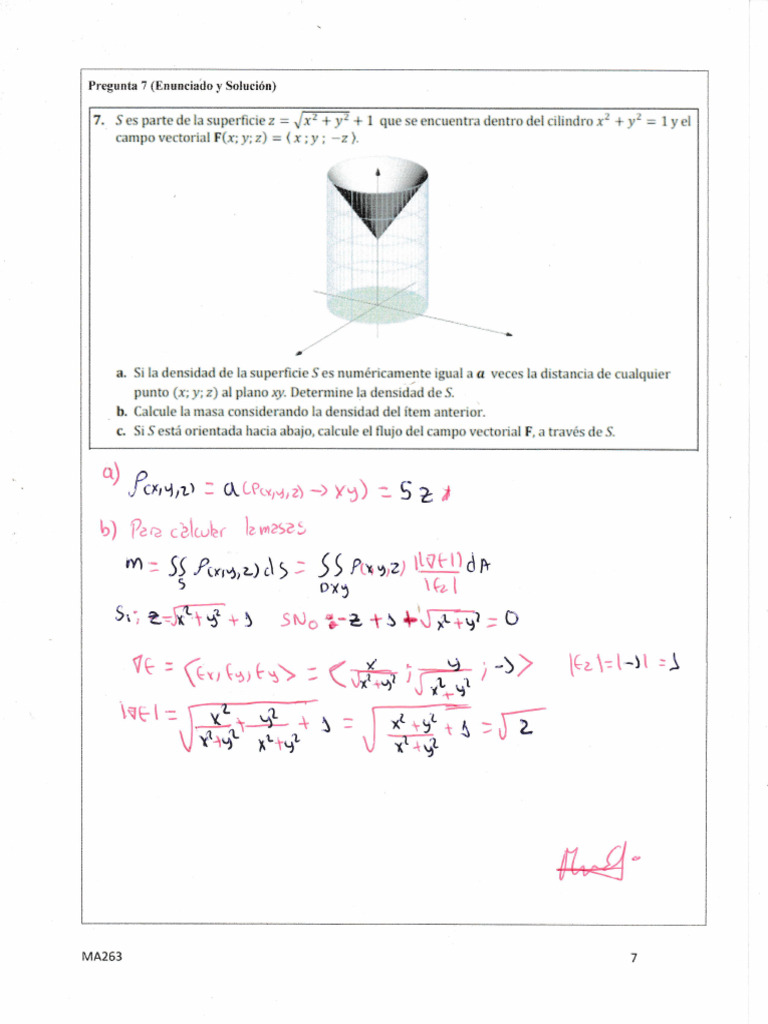 Pregunta 7 (Enunciado y Solución)
7. S es parte de la superficie z = √(x² + y²) + 1 que se encuentra dentro del cilindro x² + y² = 1 y el
campo vectorial F(x; y; z) = ⟨ x ; y ; −z ⟩.
a. Si la densidad de la superficie S es numéricamente igual a a veces la distancia de cualquier
punto (x; y; z) al plano xy. Determine la densidad de S.
b. Calcule la masa considerando la densidad del ítem anterior.
c. Si S está orientada hacia abajo, calcule el flujo del campo vectorial F, a través de S.
a) ρ(x,y,z) = a (P(x,y,z) → xy) = 5 z
b) Para calcular la masas
m = ∬_S ρ(x,y,z) dS = ∬_Dxy ρ(x,y,z) |(∇F|)/|Fz| dA
Si; z = √(x² + y²) + 1 SNo = −z + 1 + √(x² + y²) = 0
∇F = ⟨Fx, Fy, Fy⟩ = ⟨x/√(x²+y²) ; y/√(x²+y²) ; −1⟩ |Fz| = |−1| = 1
|∇F| = √(x²/(x²+y²) + y²/(x²+y²) + 1) = √((x²+y²)/(x²+y²) + 1) = √2
MA263
7